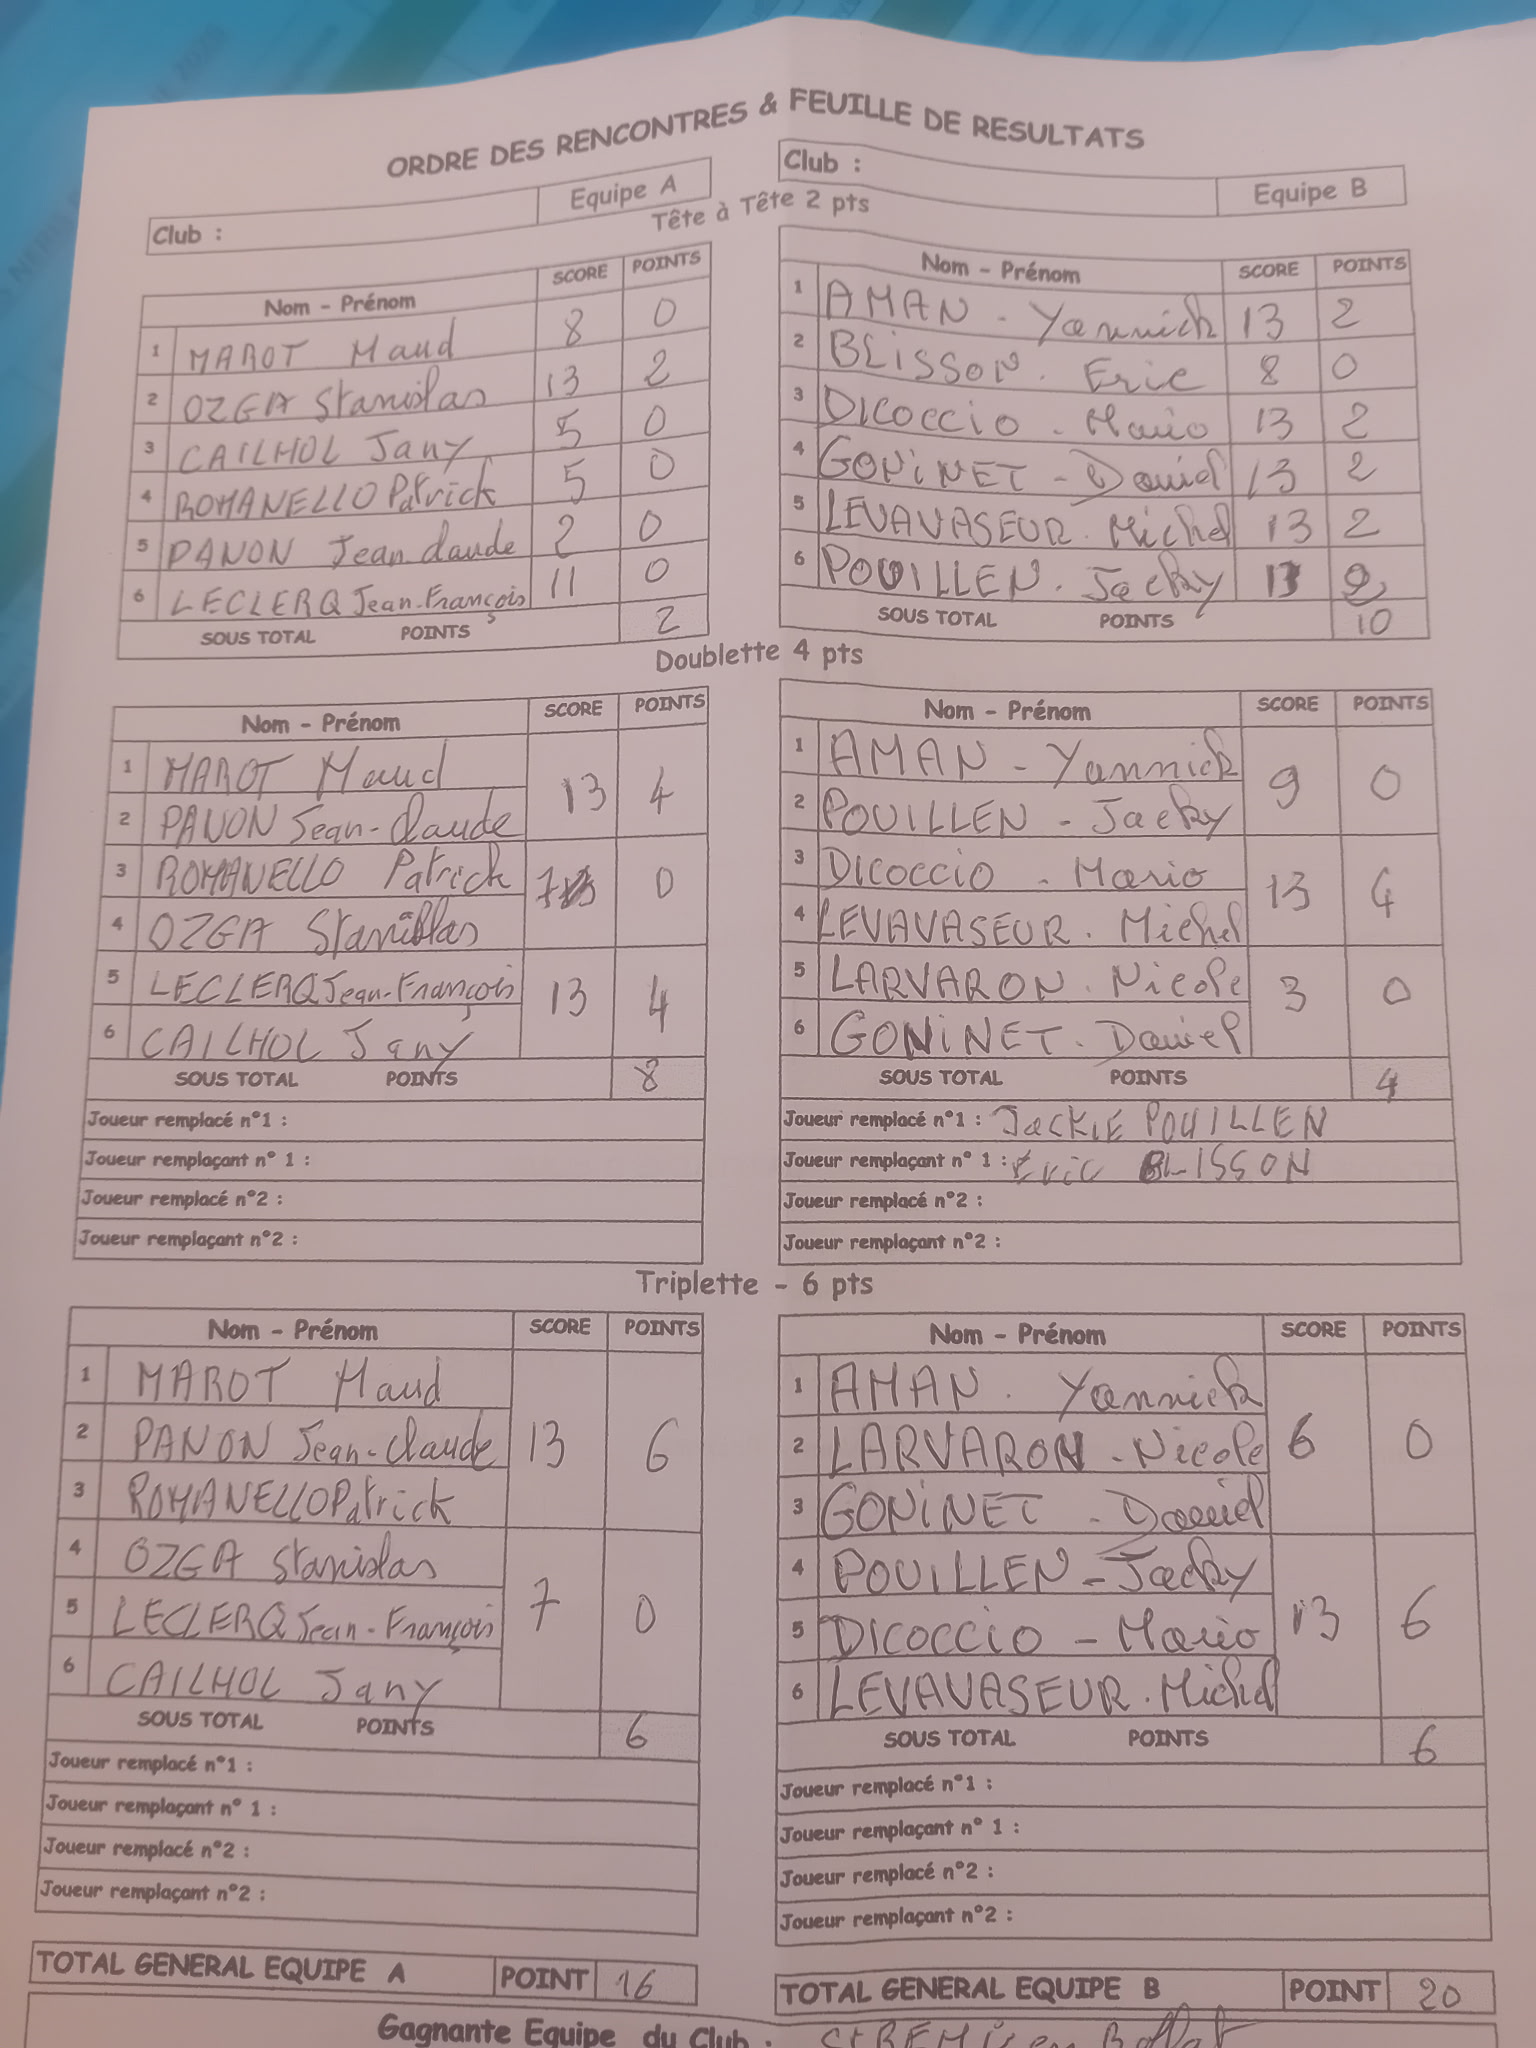 ORDRE DES RENCONTRES & FEUILLE DE RESULTATS
Club : Equipe A
Club : Equipe B
Tête à Tête 2 pts
Nom - Prénom SCORE POINTS
1 MAROT Maud 8 0
2 OZGA Stanislas 13 2
3 CAILHOL Jany 5 0
4 ROMANELLO Patrick 5 0
5 PANON Jean-Claude 2 0
6 LECLERQ Jean-François 11 0
SOUS TOTAL POINTS 2
Nom - Prénom SCORE POINTS
1 AMAN - Yannick 13 2
2 BLISSON. Eric 8 0
3 DICOCCIO - Mario 13 2
4 GONINET - Daniel 13 2
5 LEVAVASEUR. Michel 13 2
6 POUILLEN. Jacky 13 2
SOUS TOTAL POINTS 10
Doublette 4 pts
Nom - Prénom SCORE POINTS
1 MAROT Maud 13 4
2 PANON Jean-Claude
3 ROMANELLO Patrick 7 0
4 OZGA Stanislas
5 LECLERQ Jean-François 13 4
6 CAILHOL Jany
SOUS TOTAL POINTS 8
Joueur remplacé n°1 :
Joueur remplaçant n° 1 :
Joueur remplacé n°2 :
Joueur remplaçant n°2 :
Nom - Prénom SCORE POINTS
1 AMAN - Yannick 9 0
2 POUILLEN - Jacky
3 DICOCCIO - Mario 13 4
4 LEVAVASEUR. Michel
5 LARVARON. Nicole 3 0
6 GONINET. Daniel
SOUS TOTAL POINTS 4
Joueur remplacé n°1 : JACKIE POUILLEN
Joueur remplaçant n° 1 : Eric BLISSON
Joueur remplacé n°2 :
Joueur remplaçant n°2 :
Triplette - 6 pts
Nom - Prénom SCORE POINTS
1 MAROT Maud
2 PANON Jean-Claude 13 6
3 ROMANELLO Patrick
4 OZGA Stanislas
5 LECLERQ Jean-François 7 0
6 CAILHOL Jany
SOUS TOTAL POINTS 6
Joueur remplacé n°1 :
Joueur remplaçant n° 1 :
Joueur remplacé n°2 :
Joueur remplaçant n°2 :
Nom - Prénom SCORE POINTS
1 AMAN. Yannick
2 LARVARON - Nicole 6 0
3 GONINET - Daniel
4 POUILLEN - Jacky
5 DICOCCIO - Mario 13 6
6 LEVAVASEUR. Michel
SOUS TOTAL POINTS 6
Joueur remplacé n°1 :
Joueur remplaçant n° 1 :
Joueur remplacé n°2 :
Joueur remplaçant n°2 :
TOTAL GENERAL EQUIPE A POINT 16
TOTAL GENERAL EQUIPE B POINT 20
Gagnante Equipe du Club : St REMY en